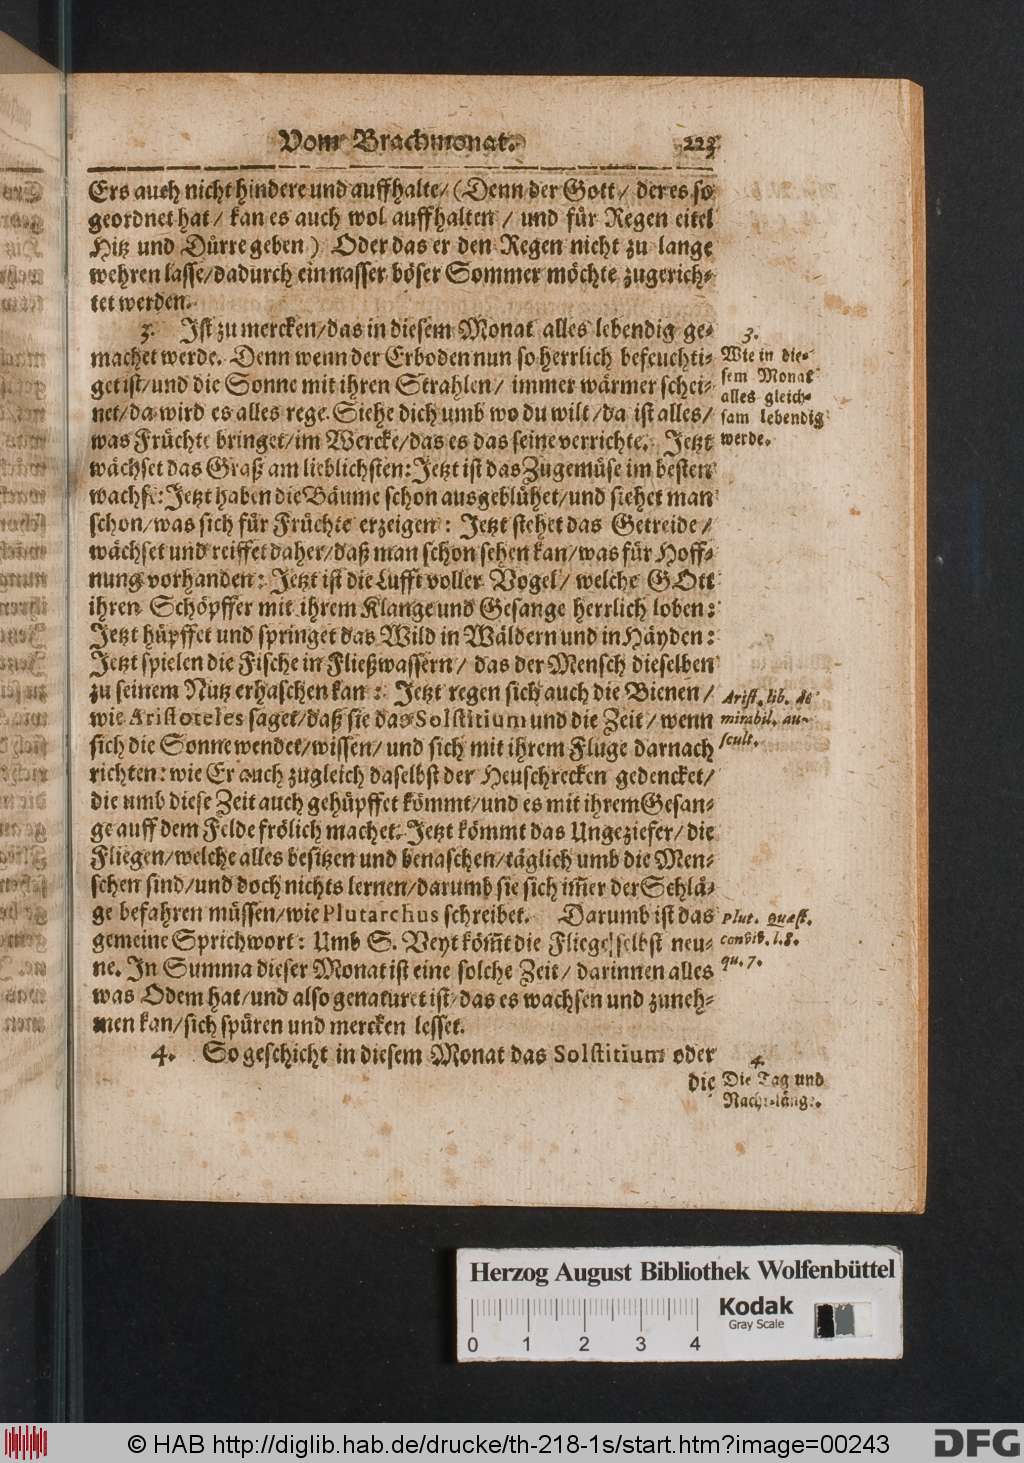 Vom Brachmonat. 223
Ers auch nicht hindere und auffhalte/ (Denn der Gott/ der es so
geordnet hat/ kan es auch wol auffhalten / und für Regen eitel
Hitz und Dürre geben) Oder das er den Regen nicht zu lange
wehren lasse/dadurch ein nasser böser Sommer möchte zugerich-
tet werden.
3. Ist zu mercken/das in diesem Monat alles lebendig ge-
machet werde. Denn wenn der Erboden nun so herrlich befeuchti-
get ist/und die Sonne mit ihren Strahlen/ immer wärmer schei-
net/da wird es alles rege. Siehe dich umb wo du wilt/da ist alles/
was Früchte bringet/im Wercke/das es das seine verrichte. Jetzt
wächset das Graß am lieblichsten: Jetzt ist das Zugemüse im besten
wachse: Jetzt haben die Bäume schon ausgeblühet/und siehet man
schon/was sich für Früchte erzeigen: Jetzt stehet das Getreide/
wächset und reiffet daher/daß man schon sehen kan/was für Hoff-
nung vorhanden: Jetzt ist die Lufft voller Vogel/ welche GOtt
ihren Schöpffer mit ihrem Klange und Gesange herrlich loben:
Jetzt hüpffet und springet das Wild in Wäldern und in Häyden:
Jetzt spielen die Fische in Fließwassern/ das der Mensch dieselben
zu seinem Nutz erhaschen kan: Jetzt regen sich auch die Bienen/
wie Aristoteles saget/daß sie das Solstitium und die Zeit/ wenn
sich die Sonne wendet/wissen/ und sich mit ihrem Fluge darnach
richten: wie Er auch zugleich daselbst der Heuschrecken gedencket/
die umb diese Zeit auch gehüpffet kömmt/und es mit ihrem Gesan-
ge auff dem Felde frölich machet. Jetzt kömmt das Ungeziefer/die
Fliegen/welche alles besitzen und benaschen/täglich umb die Men-
schen sind/und doch nichts lernen/darumb sie sich im̃er der Schlä-
ge befahren müssen/wie Plutarchus schreibet. Darumb ist das
gemeine Sprichwort: Umb S. Veyt köm̃t die Fliege selbst neu-
ne. In Summa dieser Monat ist eine solche Zeit/ darinnen alles
was Odem hat/und also genaturet ist/das es wachsen und zuneh-
men kan/sich spüren und mercken lesset.
4. So geschicht in diesem Monat das Solstitium oder
die
3.
Wie in die-
sem Monat
alles gleich-
sam lebendig
werde.
Arist. lib. de
mirabil. au-
scult.
Plut. quæst.
conviv. l. 8.
qu. 7.
4.
Die Tag und
Nacht-länge.
Herzog August Bibliothek Wolfenbüttel
0 1 2 3 4
Kodak
Gray Scale
© HAB http://diglib.hab.de/drucke/th-218-1s/start.htm?image=00243
DFG